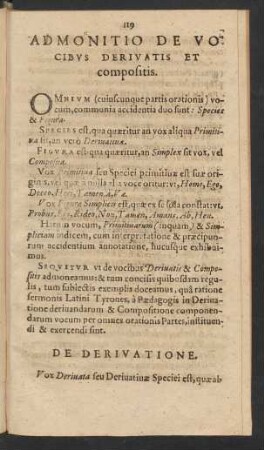 119
ADMONITIO DE VO-
CIBVS DERIVATIS ET
compositis.
OMNIVM (cuiuscunque partis orationis) vo-
cum, communia accidentia duo sunt: Species
& Figura.
SPECIES est, qua quæritur an vox aliqua Primiti-
va sit, an verò Derivativa.
FIGVRA est qua quæritur, an Simplex sit vox, vel
Composita.
Vox Primitiva seu Speciei primitivæ est suæ ori-
ginis, vel quæ à nulla alia voce oritur: vt, Homo, Ego,
Doceo, Heu, Tamen, à, Væ.
Vox Figuræ Simplicis est, quæ ex se sola constat vt,
Probus, Ego, Rideo, Non, Tamen, Amans, Ab, Heu.
Harum vocum, Primitivarum (inquam) & Sim-
plicium indicem, cum interpretatione & præcipuo-
rum accidentium annotatione, hucusque exhibui-
mus.
SEQVITVR vt de vocibus Derivatis & Compo-
sitis admoneamus: & tum concisis quibusdam regu-
lis, tum subiectis exemplis doceamus, quâ ratione
sermonis Latini Tyrones, à Pædagogis in Deriva-
tione derivandarum & Compositione componen-
darum vocum per omnes orationis Partes, instituen-
di & exercendi sint.
DE DERIVATIONE.
Vox Derivata seu Derivativæ Speciei est, quæ ab